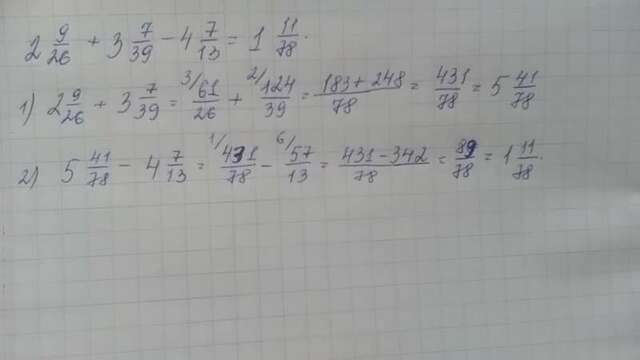 2 9/26 + 3 7/39 - 4 7/13 = 1 11/78.
1) 2 9/26 + 3 7/39 = 3/ 61/26 + 2/ 124/39 = 183+248/78 = 431/78 = 5 41/78
2) 5 41/78 - 4 7/13 = 1/ 431/78 - 6/ 57/13 = 431-342/78 = 89/78 = 1 11/78.